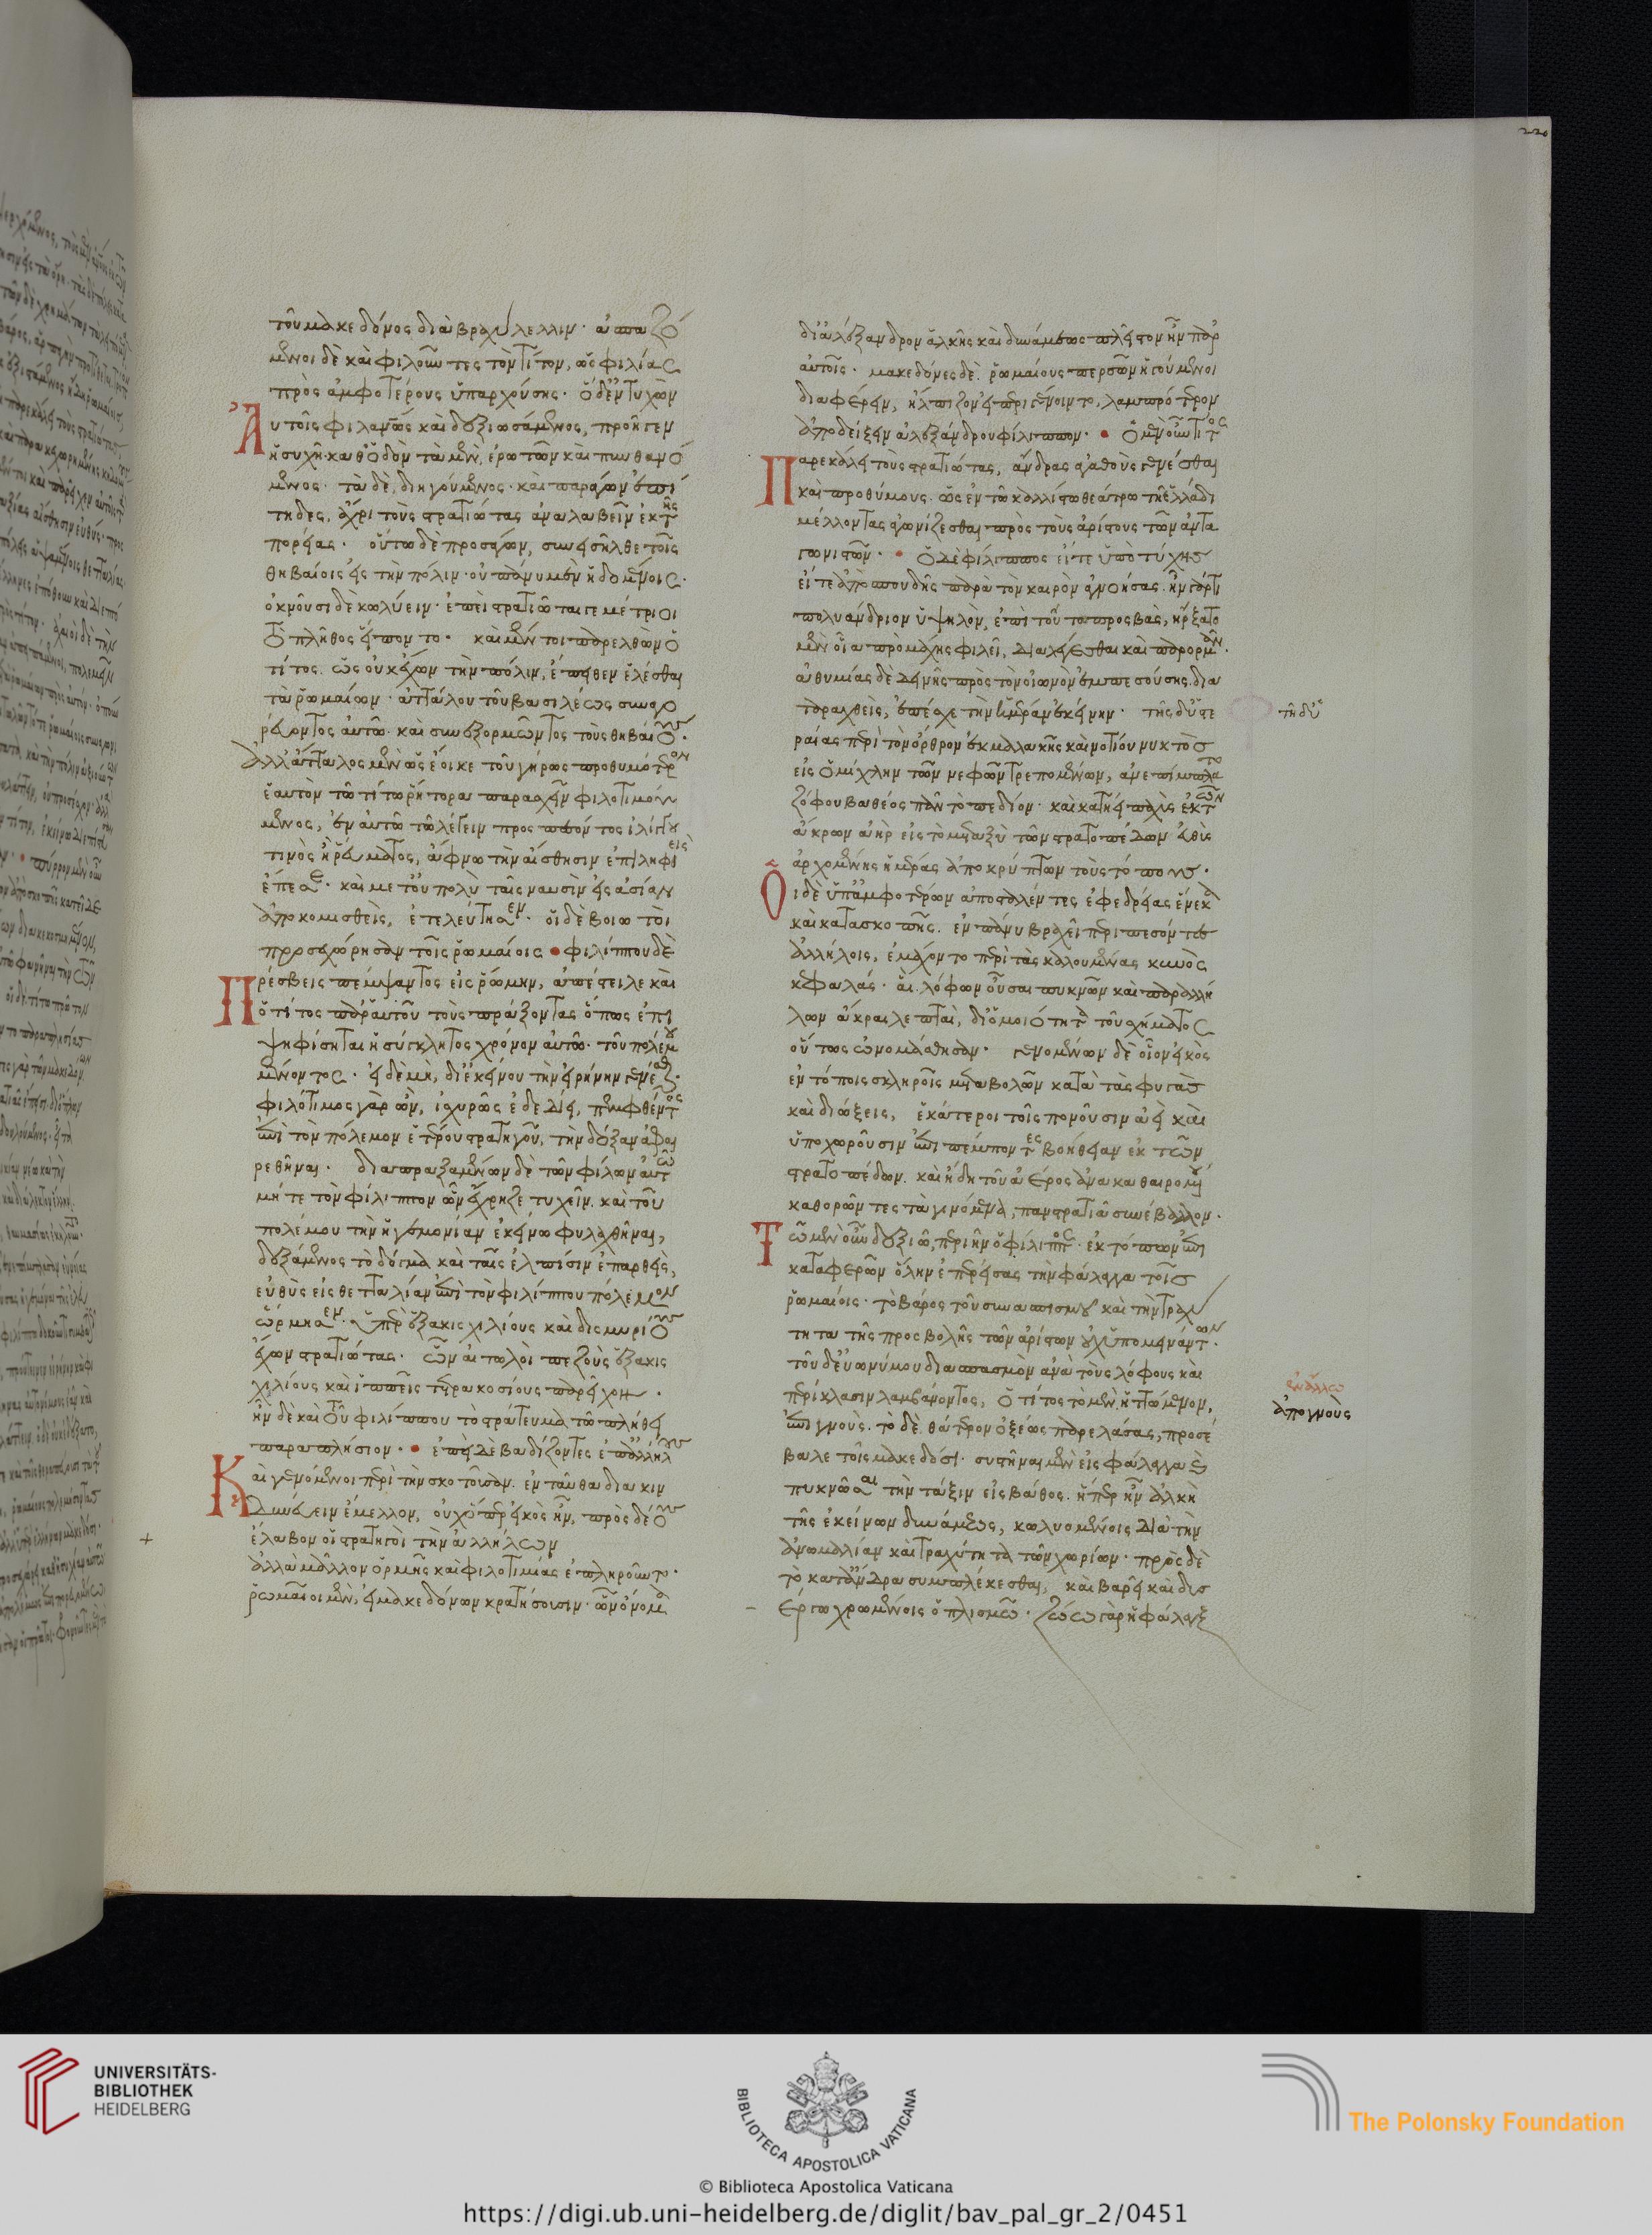 τοῦ μακεδόνος διὰ βραχυλλελλιν· ἀσπαζό
μενοι δὲ καὶ φιλοῦντες τὸν τίτον, ὡς φιλίας
πρὸς ἀμφοτέρους ὑπαρχούσης· ὁ δ' ἐντυχὼν
Αὐτοῖς φιλανως καὶ δεξιωσάμενος, προῆγεν
ἡσυχῆ καθ' ὁδὸν τὰ μὲν, ἐρωτῶν καὶ πυνθανό
μενος· τὰ δὲ, διηγούμενος· καὶ παράγων ἐπί
τηδες, ἄχρι τοὺς στρατιώτας ἀναλαβεῖν ἐκ τῆς
πορείας· οὕτω δὲ προσάγων, συνεισῆλθε τοῖς
θηβαίοις εἰς τὴν πόλιν· οὐ πάνυ μὲν ἡδομένοις·
ὀκνοῦσι δὲ κωλύειν· ἐπεὶ στρατιῶται γε μέτριοι
τὸ πλῆθος εἵποντο· καὶ μέντοι παρελθὼν ὁ
τίτος. ὡς οὐκ ἔχων τὴν πόλιν, ἔπειθεν ἑλέσθαι
τὰ ῥωμαίων· ἀττάλου τοῦ βασιλέως συναγο
ρεύοντος αὐτῶ· καὶ συνεξορμῶντος τοὺς θηβαίους·
ἀλλ' ἄτταλος μὲν ὡς ἔοικε τοῦ γήρως προθυμότερον
ἑαυτὸν τῶ τίτω ῥήτορα παρασχεῖν φιλοτιμού
μενος, ἐν αὐτῶ τῶ λέγειν προσπεσόντος ἰλίγγου
τινὸς ἢ ῥεύματος, ἄφνω τὴν αἴσθησιν ἐπιληφθεὶς
ἔπεσε· καὶ μετ' οὐ πολὺ ταῖς ναυσὶν εἰς ἀσίαν
ἀποκομισθεὶς, ἐτελεύτησεν· οἱ δὲ βοιωτοὶ
προσεχώρησαν τοῖς ῥωμαίοις • φιλίππου δὲ
Πρέσβεις πέμψαντος εἰς ῥώμην, ἀπέστειλε καὶ
ὁ τίτος παρ' αὑτοῦ τοὺς πράξοντας ὅπως ἐπι
ψηφίσηται ἡ σύγκλητος χρόνον αὐτῶ· τοῦ πολέμου
μένοντος· εἰ δὲ μὴ, δι' ἐκείνου τὴν εἰρήνην γενέσθαι·
φιλότιμος γὰρ ὢν, ἰσχυρῶς ἐδεδίει, πεμφθέντος
ἐπὶ τὸν πόλεμον ἑτέρου στρατηγοῦ, τὴν δόξαν ἀφαι
ρεθῆναι· διαπραξαμένων δὲ τῶν φίλων αὐτῶ
μήτε τὸν φίλιππον ὧν ἔχρηζε τυχεῖν. καὶ τοῦ
πολέμου τὴν ἡγεμονίαν ἐκείνω φυλαχθῆναι,
δεξάμενος τὸ δόγμα καὶ ταῖς ἐλπίσιν ἐπαρθεὶς,
εὐθὺς εἰς θετταλίαν ἐπὶ τὸν φιλίππου πόλεμον
ὥρμησεν· ὑπὲρ ἑξακισχιλίους καὶ δισμυρίους
ἔχων στρατιώτας· ὧν αἰτωλοὶ πεζοὺς ἑξακις
χιλίους καὶ ἱππεῖς τετρακοσίους παρεῖχον·
ἦν δὲ καὶ τοῦ φιλίππου τὸ στράτευμα τῶ πλήθει
παραπλήσιον· • ἐπεὶ δὲ βαδίζοντες ἐπ' ἀλλήλους
Καὶ γενόμενοι περὶ τὴν σκοτοῦσαν. ἐνταῦθα διακιν
δυνεύειν ἔμελλον, οὐχ' ὅπερ εἰκὸς ἦν, πρὸς δέους
ἔλαβον οἱ στρατηγοὶ τὴν ἀλλήλων
ἀλλὰ μᾶλλον ὁρμῆς καὶ φιλοτιμίας ἐπληροῦντο·
ῥωμαῖοι μὲν, εἰ μακεδόνων κρατήσουσιν· ὧν ὄνομα
δι' ἀλέξανδρον ἀλκῆς καὶ δυνάμεως πλεῖστον ἦν παρ'
αὐτοῖς· μακεδόνες δὲ. ῥωμαίους περσῶν ἡγούμενοι
διαφέρειν, ἤλπιζον εἰ περιγένοιντο, λαμπρότερον
ἀποδείξειν ἀλεξάνδρου φίλιππον· • ὁ μὲν οὖν τίτος
Παρεκάλει τοὺς στρατιώτας, ἄνδρας ἀγαθοὺς γενέσθαι
καὶ προθύμους. ὡς ἐν τῶ καλλίστω θεάτρω τῆ ἑλλάδι
μέλλοντας ἀγωνίζεσθαι πρὸς τοὺς ἀρίστους τῶν ἀντα
γωνιστῶν· • ὁ δὲ φίλιππος εἴτε ὑπὸ τύχης
εἴτε ἀπὸ σπουδῆς παρὰ τὸν καιρὸν ἀγνοήσας. ἦν γάρ τι
πολυάνδριον ὑψηλὸν, ἐπὶ τοῦτο προσβὰς, ἤρξατο
μὲν οἷα πρὸ μάχης φιλεῖ, διαλέγεσθαι καὶ παρορμᾶν·
ἀθυμίας δὲ δεινῆς πρὸς τὸν οἰωνὸν ἐμπεσούσης. δια
ταραχθεὶς, ἐπέσχε τὴν ἡμέραν ἐκείνην· τῆς δ' ὑστε
τῆ δ' ὑ
ραίας περὶ τὸν ὄρθρον ἐκ μαλακῆς καὶ νοτίου νυκτὸς
εἰς ὁμίχλην τῶν νεφῶν τρεπομένων, ἀνεπίμπλατο
ζόφου βαθέος πᾶν τὸ πεδίον· καὶ κατήει παχὺς ἐκ τῶν
ἄκρων ἀὴρ εἰς τὸ μεταξὺ τῶν στρατοπέδων εὐθὺς
ἀρχομένης ἡμέρας ἀποκρύπτων τοὺς τόπους·
Οἱ δὲ ὑπ' ἀμφοτέρων ἀποσταλέντες ἐφεδρείας ἕνεκα
καὶ κατασκοπῆς. ἐν πάνυ βραχεῖ περιπεσόντες
ἀλλήλοις, ἐμάχοντο περὶ τὰς καλουμένας κυνὸς
κεφαλάς· αἳ λόφων οὖσαι πυκνῶν καὶ παραλλή
λων ἄκραι λεπταὶ, δι' ὁμοιότητα τοῦ σχήματος
οὕτως ὠνομάσθησαν· γενομένων δὲ οἷον εἰκὸς
ἐν τόποις σκληροῖς μεταβολῶν κατὰ τὰς φυγὰς
καὶ διώξεις, ἑκάτεροι τοῖς πονοῦσιν ἀεὶ καὶ
ὑποχωροῦσιν ἐπιπέμποντες βοήθειαν ἐκ τῶν
στρατοπέδων. καὶ ἤδη τοῦ ἀέρος ἀνακαθαιρομένου
καθορῶντες τὰ γινόμενα, πανστρατιᾶ συνέβαλλον·
Τῶ μὲν οὖν δεξιῶ, περιῆν ὁ φίλιππος· ἐκ τόπων ἐπι
καταφερῶν ὅλην ἐπερείσας τὴν φάλαγγα τοῖς
ῥωμαίοις· τὸ βάρος τοῦ συνασπισμοῦ καὶ τὴν τραχύ
τητα τῆς προσβολῆς τῶν ἀρίστων οὐχ' ὑπομεινάντων·
τοῦ δ' εὐωνύμου διασπασμὸν ἀνὰ τοὺς λόφους καὶ
περίκλασιν λαμβάνοντος, ὁ τίτος τὸ μὲν. ἡττώμενον,
ἐν ἄλλω
ἀπογνοὺς
ἐπιγνοὺς. τὸ δὲ. θάτερον ὀξέως παρελάσας, προσέ
βαλε τοῖς μακεδόσι· συστῆναι μὲν εἰς φάλαγγα καὶ
πυκνῶσαι τὴν τάξιν εἰς βάθος. ἥπερ ἦν ἀλκὴ
τῆς ἐκείνων δυνάμεως, κωλυομένοις διὰ τὴν
ἀνωμαλίαν καὶ τραχύτητα τῶν χωρίων· πρὸς δὲ
τὸ κατ' ἄνδρα συμπλέκεσθαι, καὶ βαρεῖ καὶ δυσ
έργω χρωμένοις ὁπλισμῶ· ζώω γὰρ ἡ φάλαγξ
220
UNIVERSITÄTS-
BIBLIOTHEK
HEIDELBERG
BIBLIOTECA APOSTOLICA VATICANA
The Polonsky Foundation
© Biblioteca Apostolica Vaticana
https://digi.ub.uni-heidelberg.de/diglit/bav_pal_gr_2/0451